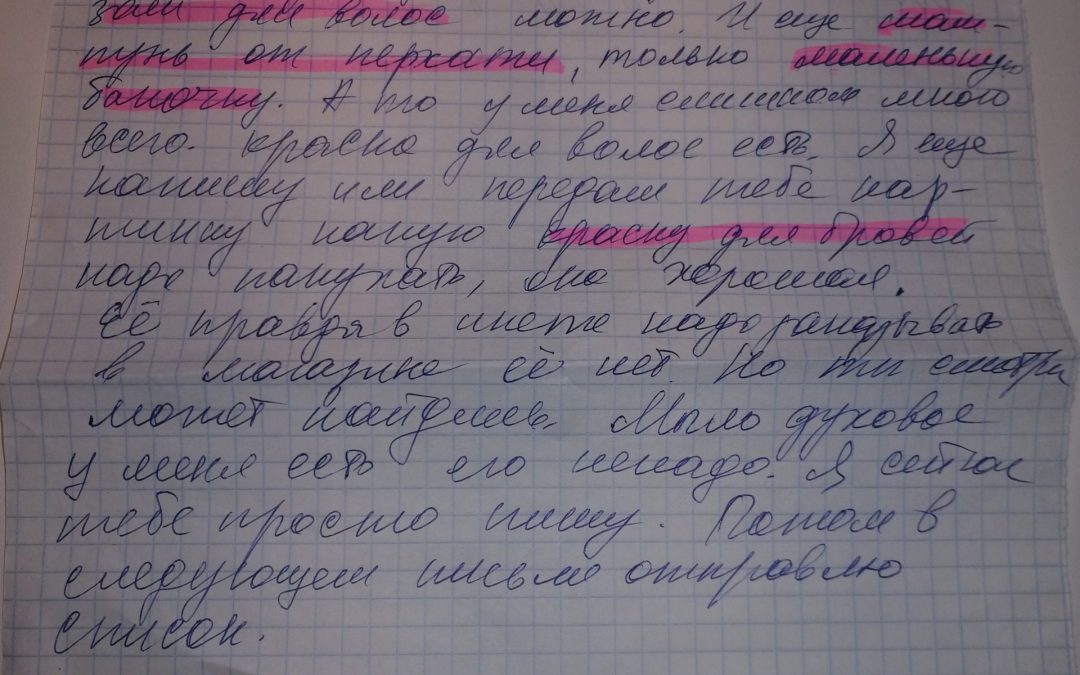 зам для волос можно. И еще шам-
пунь от перхоти, только маленькую
баночку. А то у меня слишком много
всего. Краска для волос есть. Я еще
напишу или передам тебе кар-
тинку какую краску для бровей
надо покупать, она хорошая.
Её правда в инете надо заказывать
в магазине её нет. Но ты смотри
может найдешь. Мыло духовое
у меня есть его ненадо. Я сейчас
тебе просто пишу. Потом в
следующем письме отправлю
список.